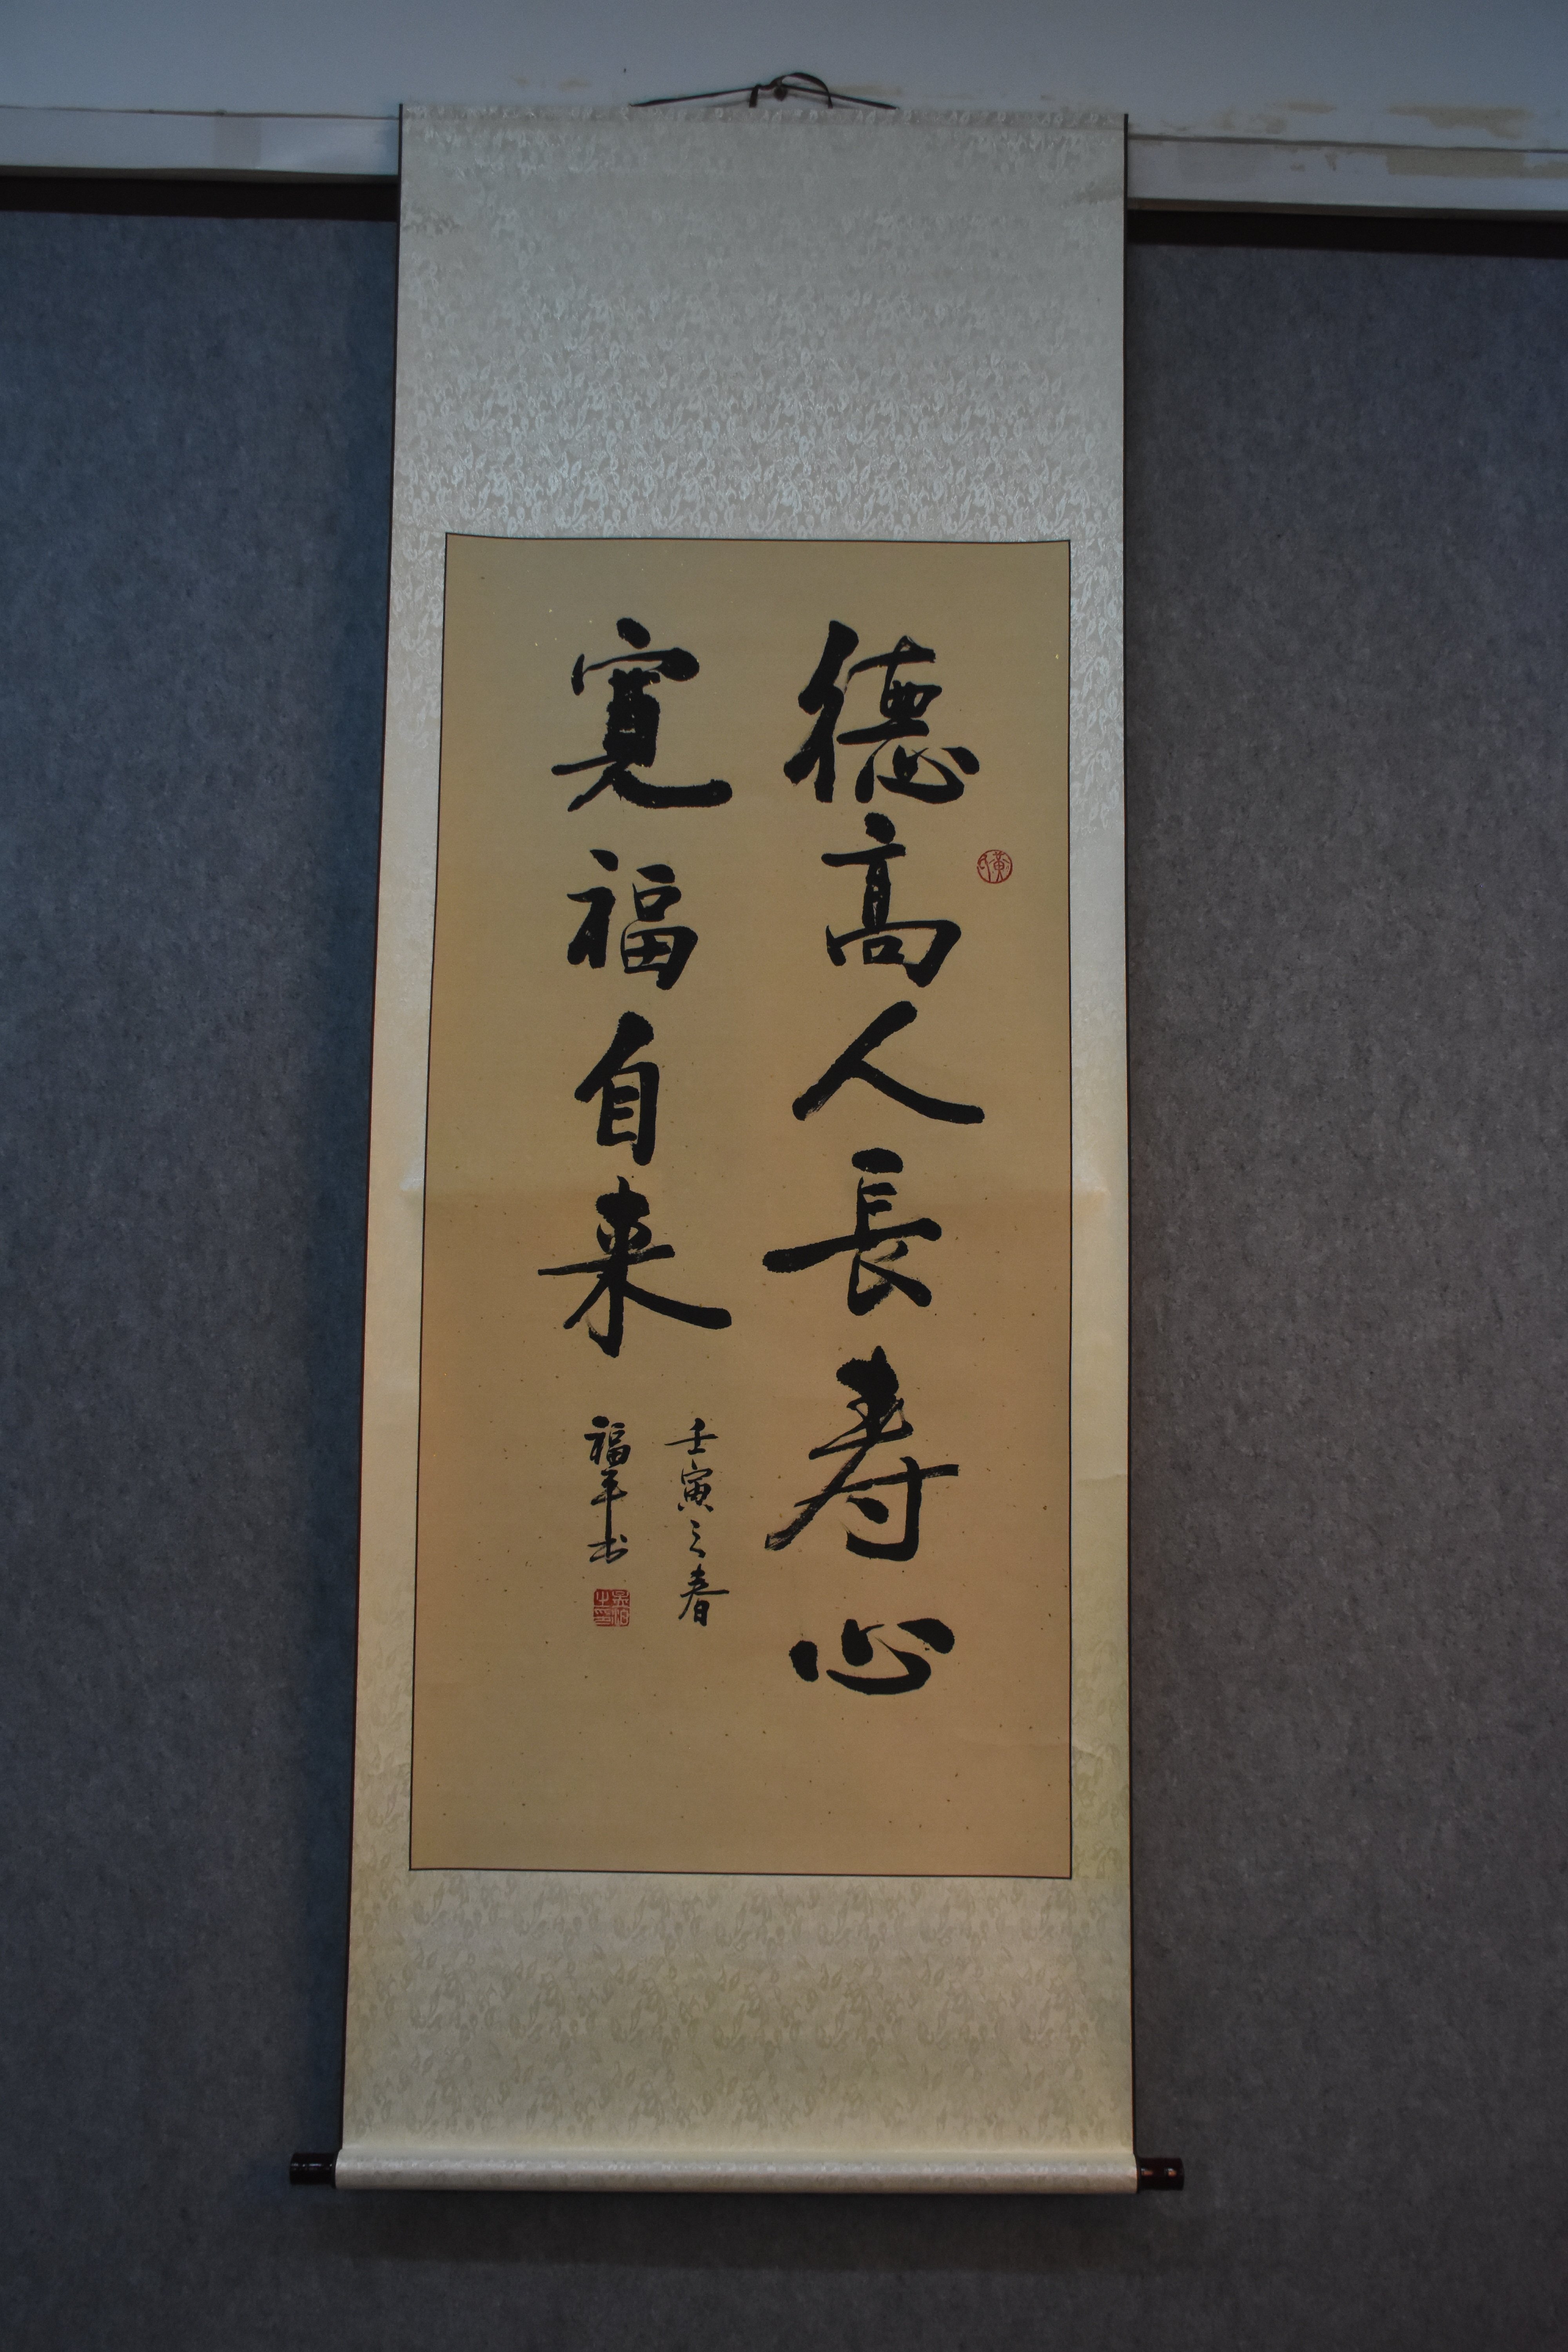 德高人長寿心
寬福自来
壬寅之春
福羊书